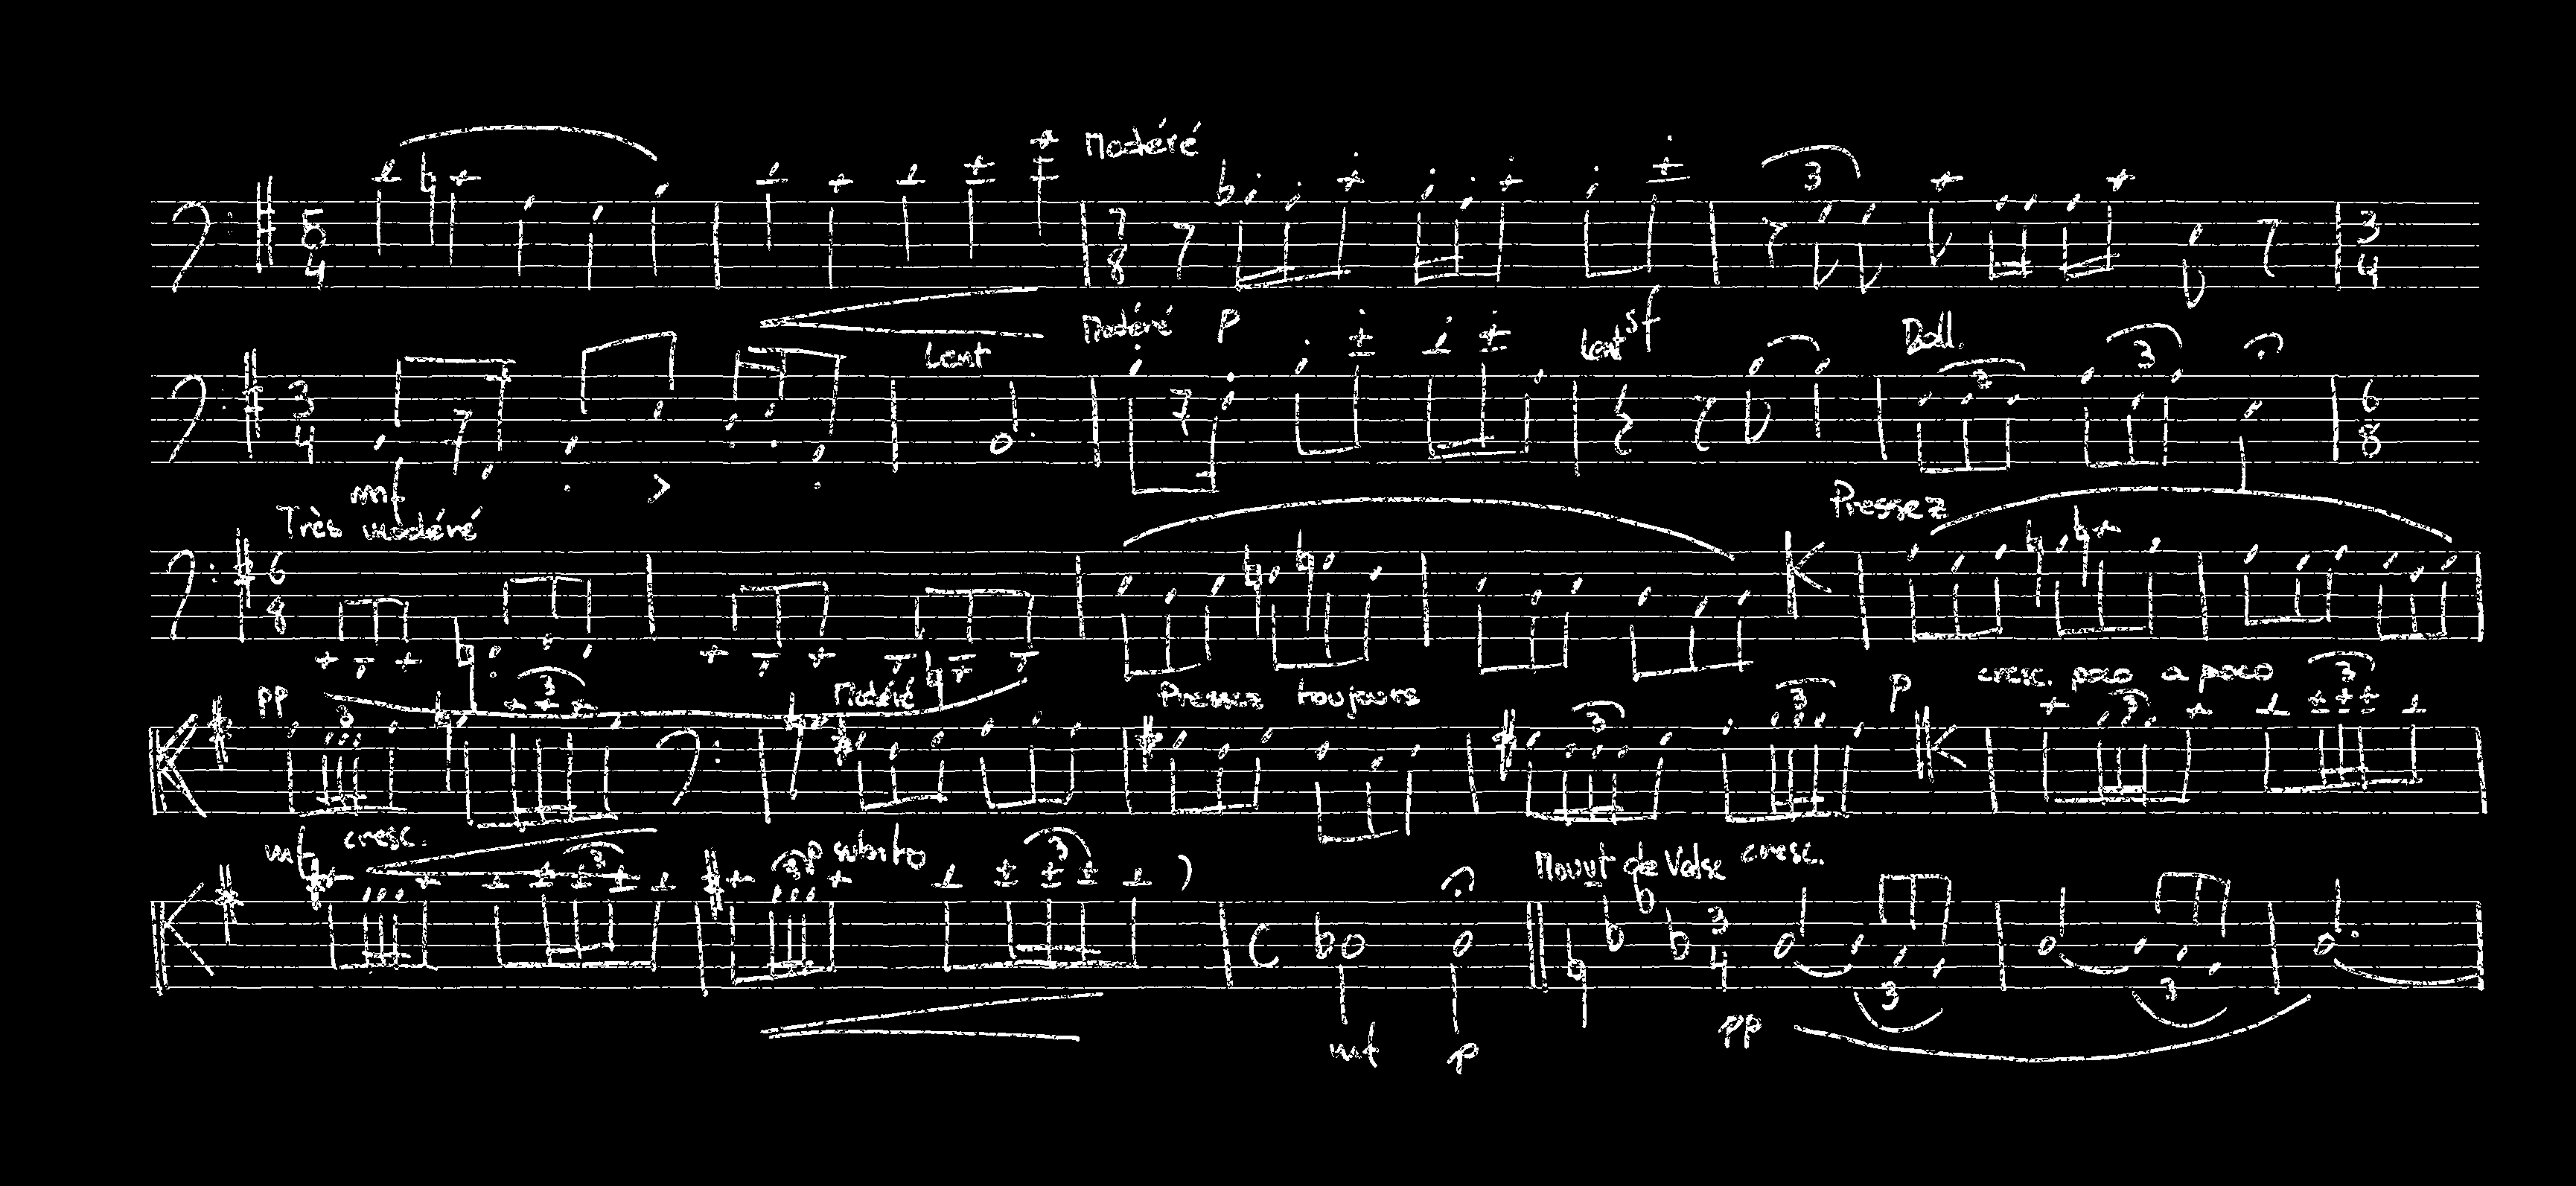 Modéré
3
5 4 7 8 3 4
Lent Modéré p Lent sf Ball.
3 4 3 6 8
mf
Très modéré Pressez
6 8
pp 3 Modéré Pressez toujours p cresc. poco a poco 3
3 3 3 3
mf cresc. 3 3 p subito 3 Mouvt de Valse cresc.
C 3 4
3 3
mf p pp